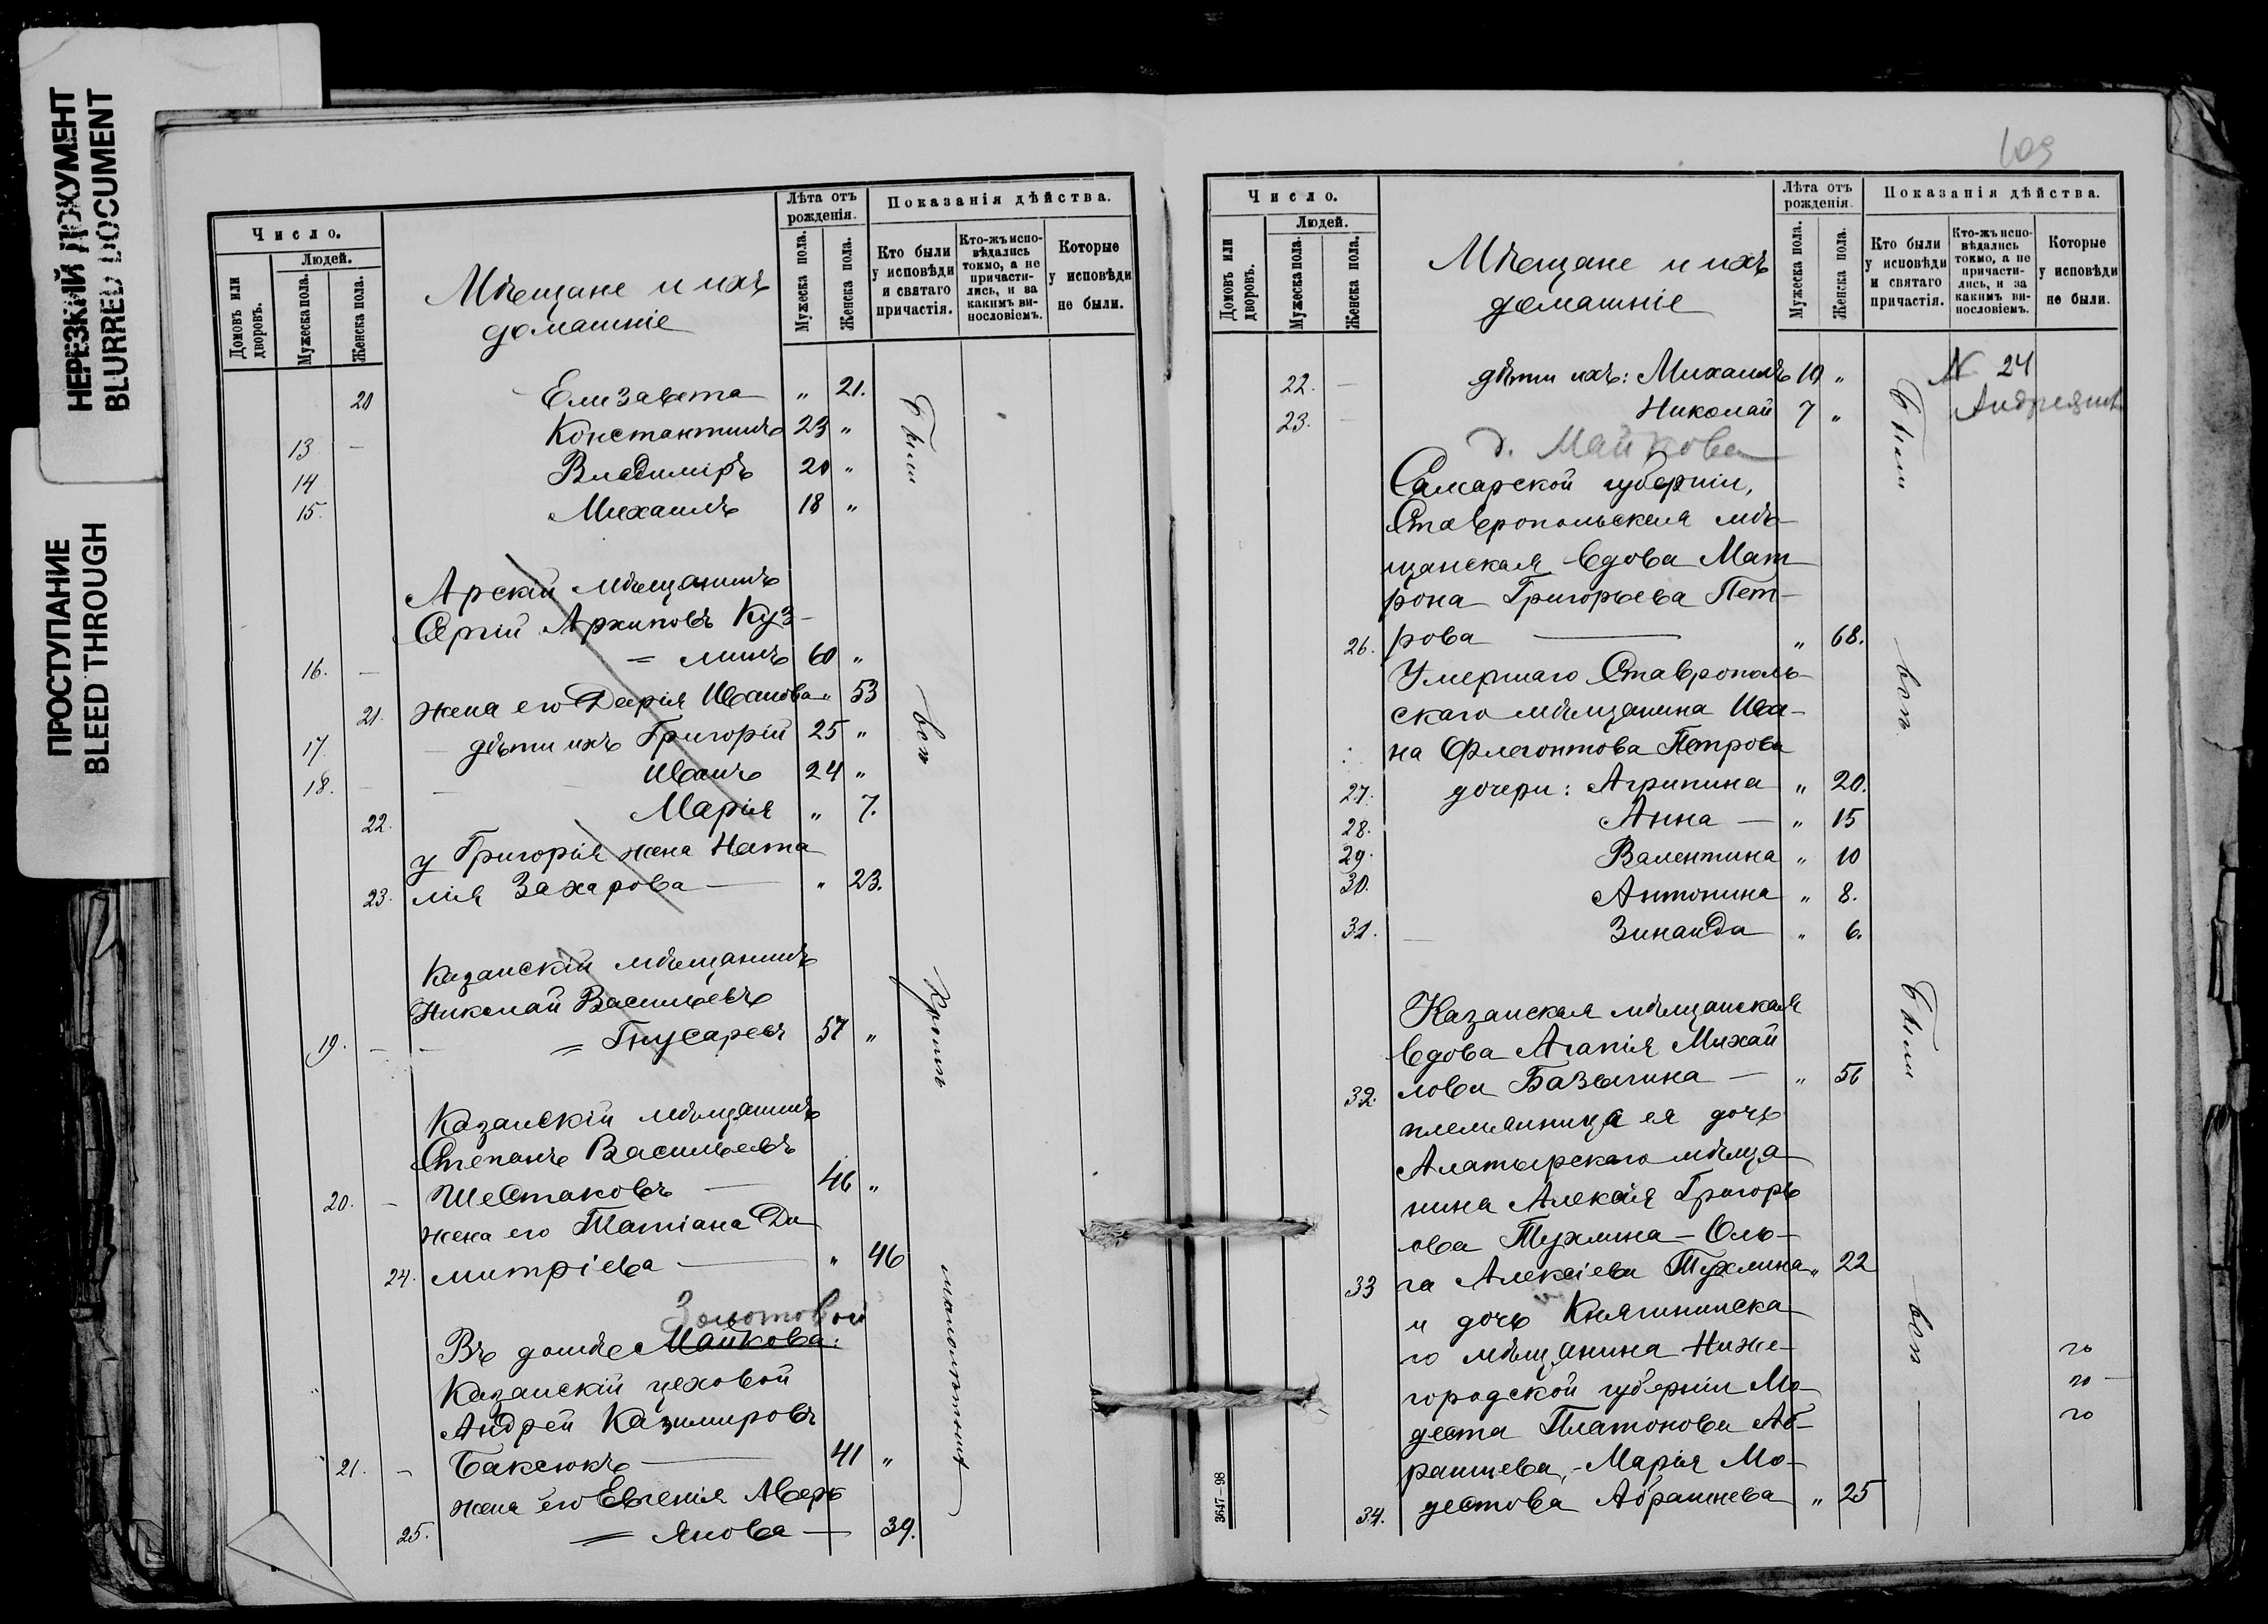 НЕРЕЗКИЙ ДОКУМЕНТ
BLURRED DOCUMENT
ПРОСТУПАНИЕ
BLEED THROUGH
Число.
Людей.
Домовъ или дворовъ.
Мужеска пола.
Женска пола.
Мѣщане и ихъ
домашніе
Лѣта отъ рожденія.
Мужеска пола.
Женска пола.
Показанія дѣйства.
Кто были у исповѣди и святаго причастія.
Кто-жъ испо-вѣдались токмо, а не причасти-лись, и за какимъ ви-нословіемъ.
Которые у исповѣди не были.
20 Елизавета " 21.
13 - Константинъ 23 "
14 Владиміръ 20 "
15. Михаилъ 18 "
Были
Арскій мѣщанинъ
Сергій Архиповъ Куз-
16. - = минъ 60 "
21. жена его Дарія Иванова " 53
17. дѣти ихъ Григорій 25 "
18. - Иванъ 24 "
22. Марія " 7.
у Григорія жена Ната
23. лія Захарова — " 23.
всѣ
Казанскій мѣщанинъ
Николай Васильевъ
19. - = Гнусаревъ 57 "
Кромѣ
Казанскій мѣщанинъ
Степанъ Васильевъ
20. - Шестаковъ — 46 "
жена его Татіана Ди
24. митріева — " 46
малолѣтнихъ
Золотовой
Въ домѣ Майкова:
Казанскій цеховой
Андрей Казимировъ
21. - Баксюкъ — 41 "
жена его Евгенія Аверь
25. = янова — 39.
109
Число.
Людей.
Домовъ или дворовъ.
Мужеска пола.
Женска пола.
Мѣщане и ихъ
домашніе
Лѣта отъ рожденія.
Мужеска пола.
Женска пола.
Показанія дѣйства.
Кто были у исповѣди и святаго причастія.
Кто-жъ испо-вѣдались токмо, а не причасти-лись, и за какимъ ви-нословіемъ.
Которые у исповѣди не были.
22. - дѣти ихъ: Михаилъ 10 "
N 24
23. - Николай 7 "
д. Майкова
Были
Самарской губерніи,
Ставропольская мѣ-
щанская вдова Мат
рона Григорьева Пет-
26. рова — " 68.
Умершаго Ставрополь
скаго мѣщанина Ива-
на Флегонтова Петрова
27. дочери: Агрипина " 20.
28. Анна — " 15
29. Валентина " 10
30. Антонина " 8.
31. Зинаида " 6.
всѣ
Казанская мѣщанская
вдова Агапія Михай
32. лова Базыгина — " 56
племянница ея дочь
Алатырскаго мѣща
нина Алексія Григорь
ева Тухлина - Оль-
33 га Алексіева Тухлина " 22
и дочь Княгининска
го мѣщанина Ниже-
городской губерніи Мо
деста Платонова Аб-
рамцева, - Марія Мо-
34. дестова Абрамцева " 25
Были
всѣ
го
го
го
3647—98